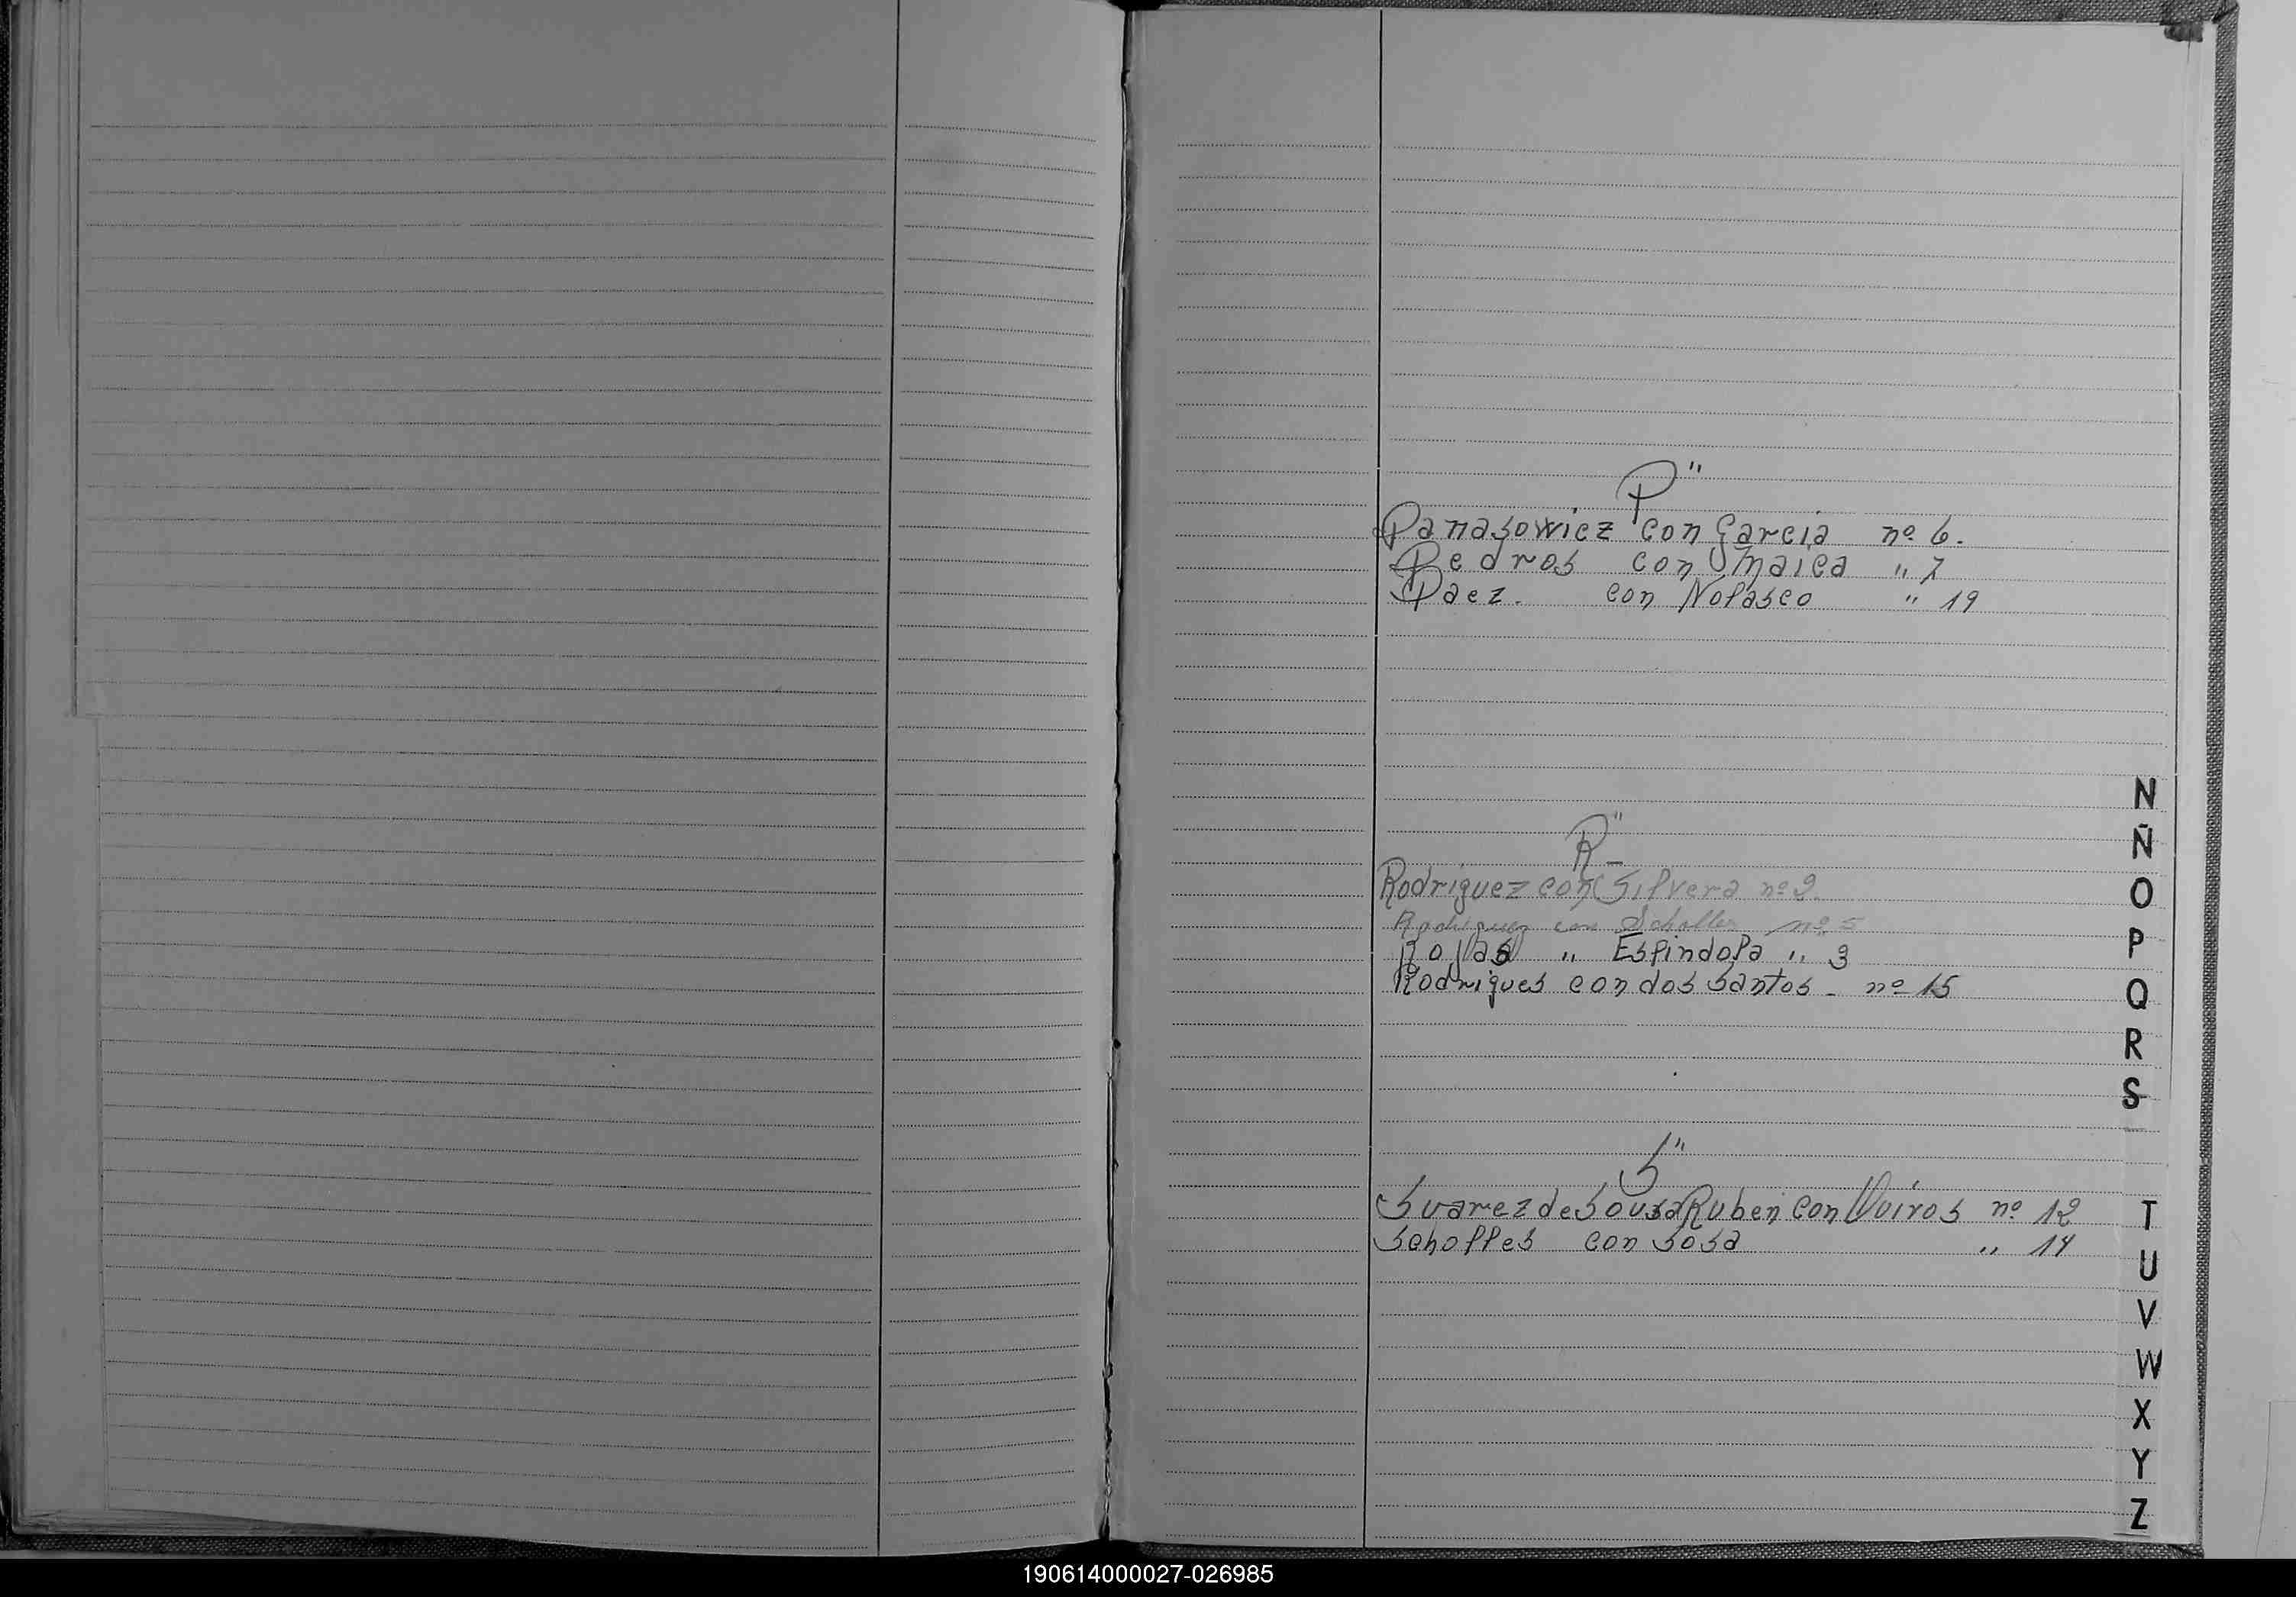 P"
Panasowicz con Garcia nº 6.
Pedros con Maica " 7
Paez. con Nolasco " 19
N
Ñ
R"
Rodriguez con Silvera nº 2
O
Rodriguez con Scholler nº 5
Rojas " Espindola " 3
P
Rodrigues con dos Santos - nº 15
Q
R
S
S"
Suarez de Sousa Ruben con Viiros nº 12
T
Scholles con Sosa " 14
U
V
W
X
Y
Z
190614000027-026985